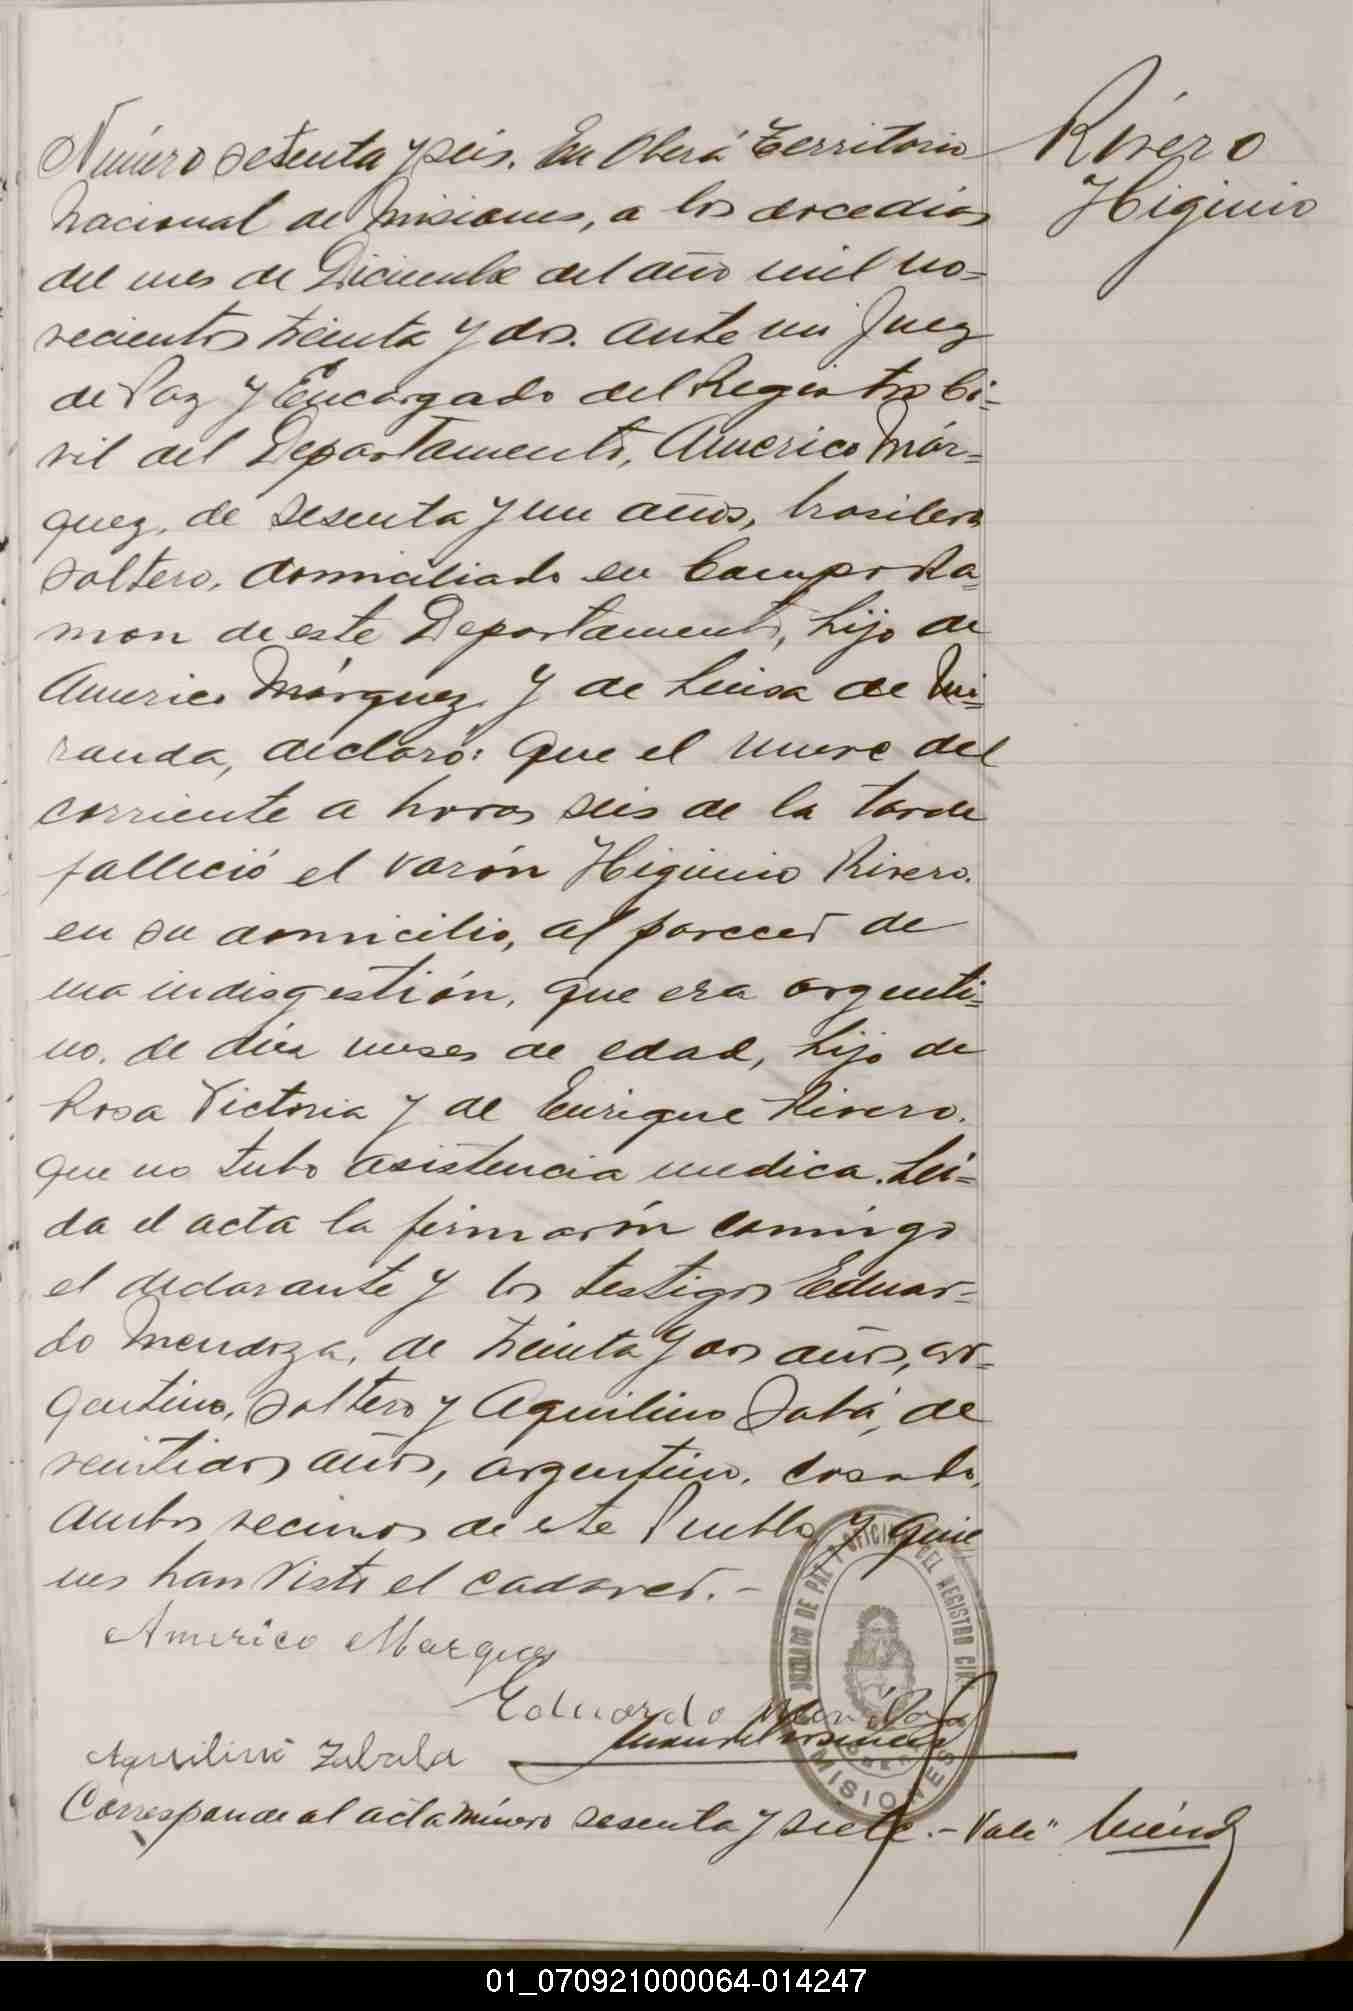 Rivero
Higinio
Número setenta y seis. En Oberá Territorio
Nacional de Misiones, a los doce dias
del mes de Diciembre del año mil no=
vecientos treinta y dos. ante mi Juez
de Paz y Encargado del Registro Ci=
vil del Departamento, Americo Már=
quez, de sesenta y un años, brasilero
soltero, domiciliado en Campo Ra=
mon de este Departamento, hijo de
Americo Márquez, y de Luisa de Mi=
randa, declaró: Que el nueve del
corriente a horas seis de la tarde
falleció el varón Higinio Rivero.
en su domicilio, al parecer de
una indisgestión, que era argenti=
no, de diez meses de edad, hijo de
Rosa Victoria y de Enrique Rivero.
que no tubo asistencia medica. Lei=
da el acta la firmarón comigo
el declarante y los testigos Eduar=
do Mendoza, de treinta y dos años, ar=
gentino, soltero y Aquilino Sabá, de
veintidos años, argentino, casado,
ambos vecinos de este Pueblo y quie
nes han visto el cadaver.-
Americo Marquez
Eduardo
Aquilino Zabala
JUZGADO DE PAZ Y OFICINA DEL REGISTRO CIVIL
OBERÁ
MISIONES
Corresponde al acta número sesenta y siete.- Vale"
01_070921000064-014247